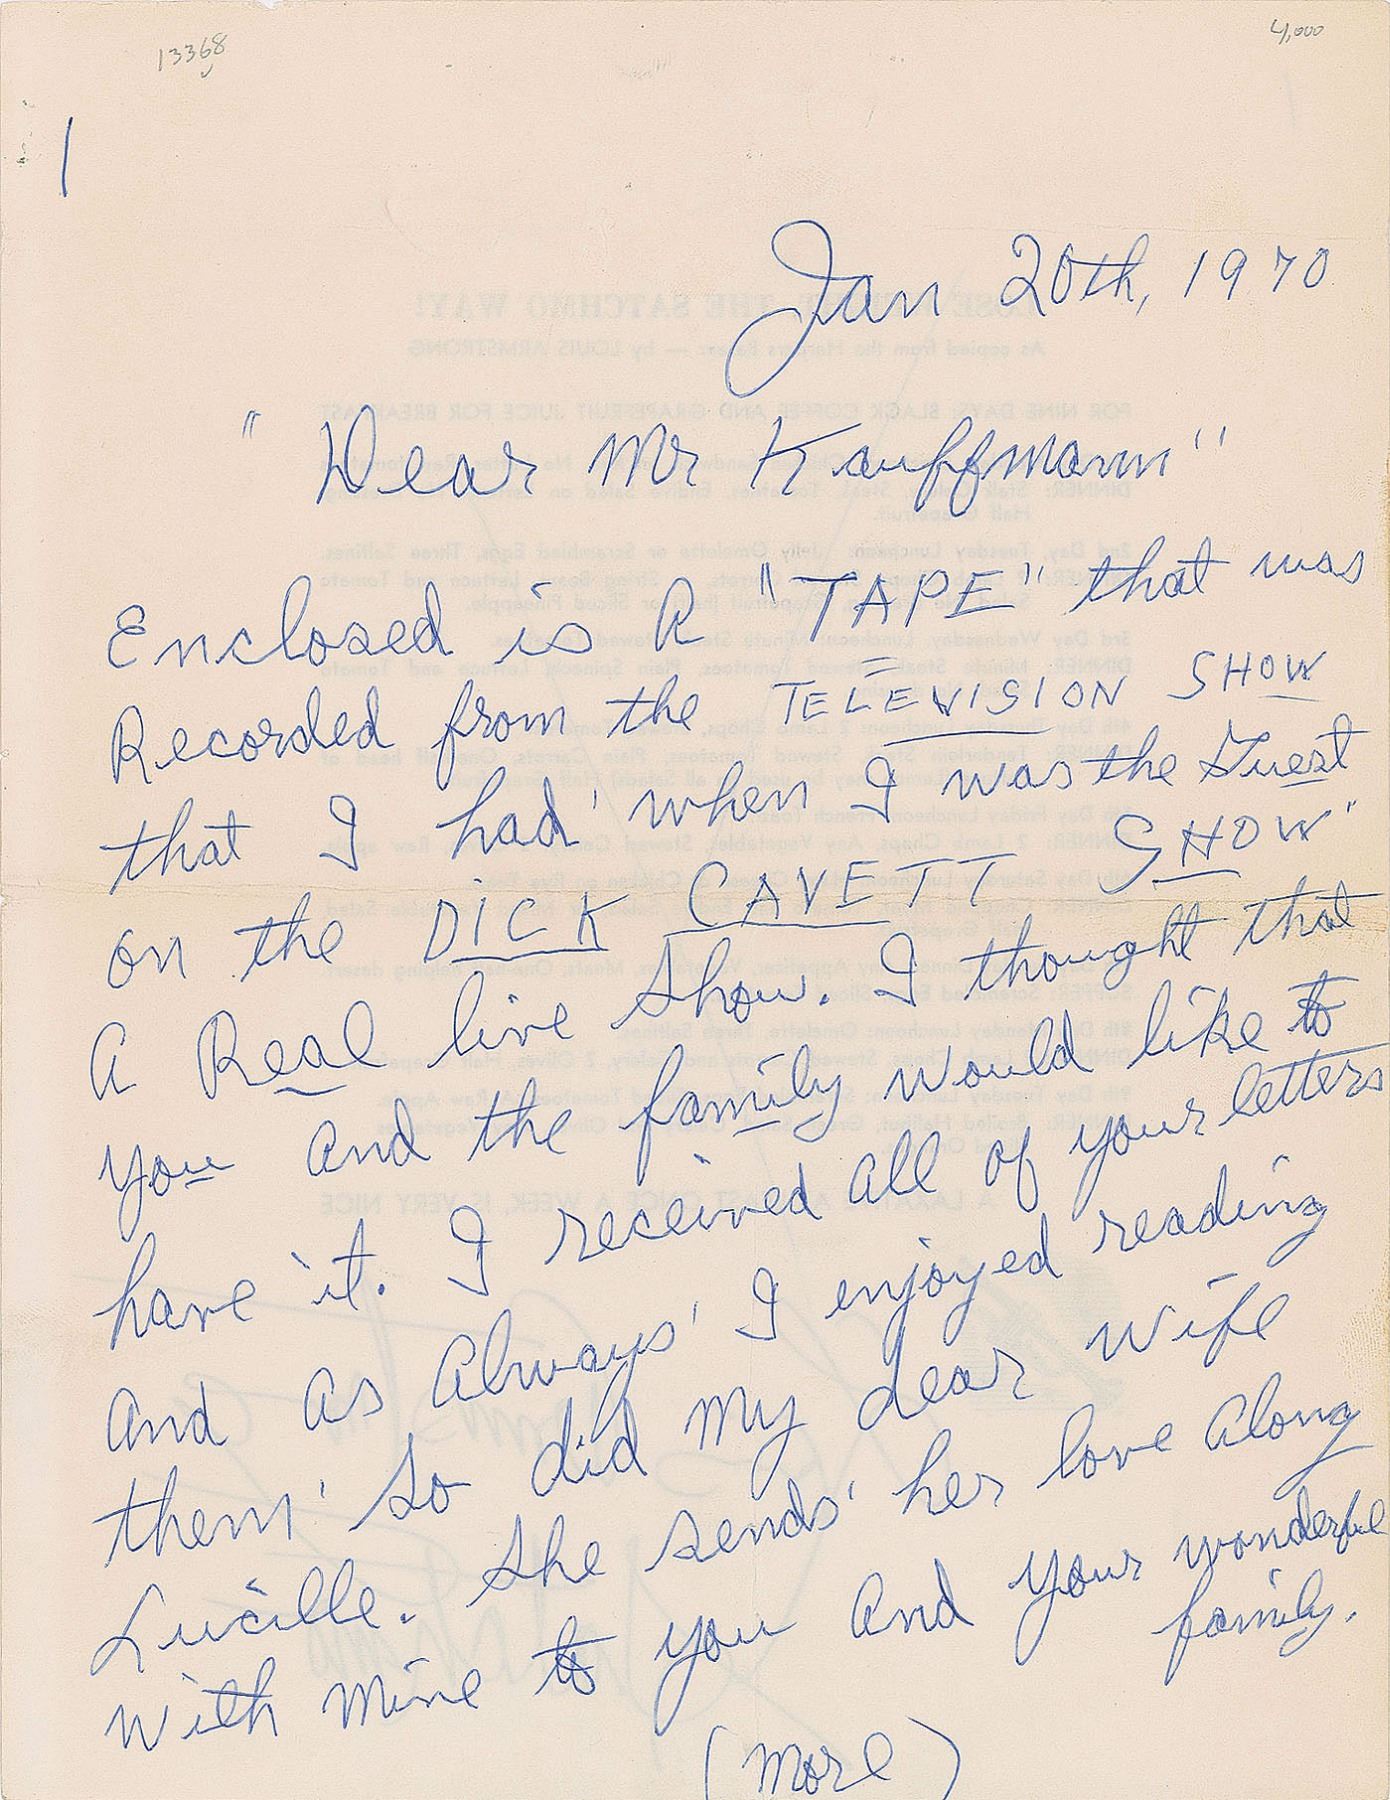 13368
4,000
1
Jan 20th, 1970
"Dear Mr Kauffmann"
Enclosed is A "TAPE" that was
Recorded from the TELEVISION SHOW
that I had' when I was the Guest
on the DICK CAVETT SHOW"
A Real live show. I thought that
you and the family would like to
have it. I received all of your letters
And as Always' I enjoyed reading
them' So did My dear wife
Lucille. She sends' her love along
with mine to you and your wonderful
family.
(More)